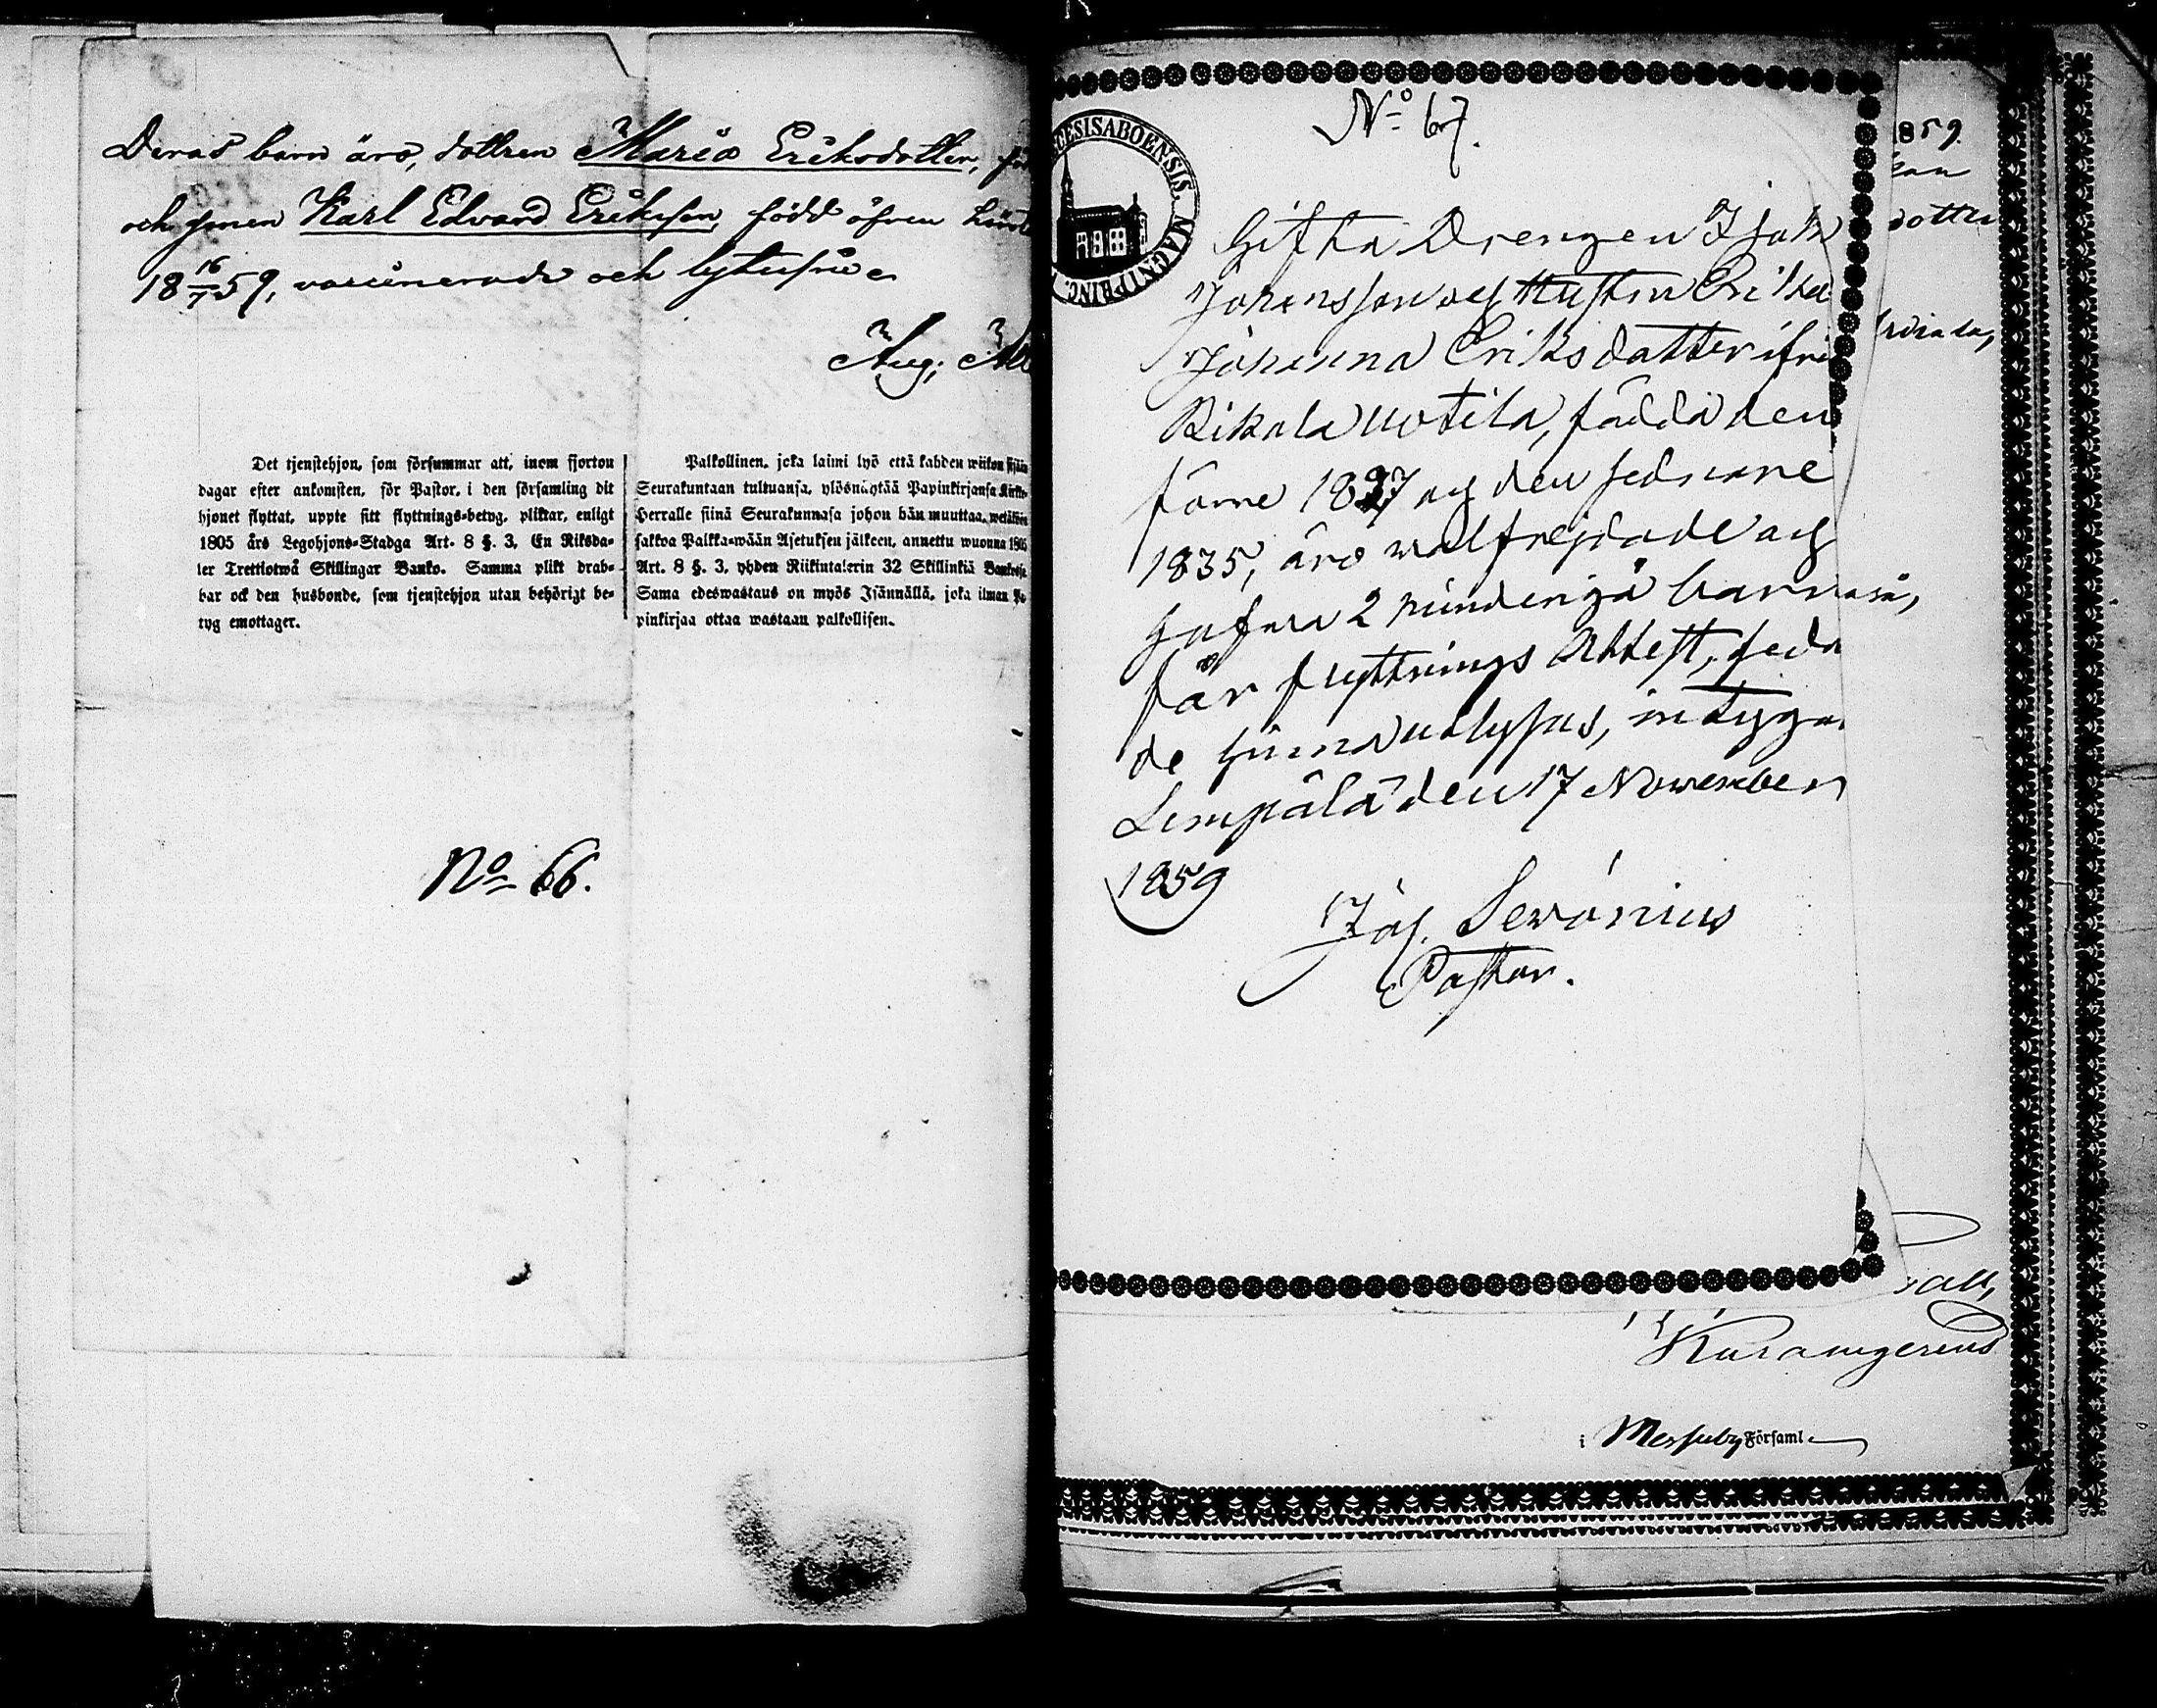 Deras barn äro, dottren Maria Eriksdotter,
och sonen Karl Edvard Eriksson, född äfven
18 16/7 59, vaccinerade och lytesfria.
Aug;
Det tjenstehjon, som försummar att, inom fjorton
dagar efter ankomsten, för Pastor, i den församling dit
hjonet flyttat, uppte sitt flyttnings-betyg, pliktar, enligt
1805 års Legohjons-Stadga Art. 8 §. 3, En Riksda-
ler Trettiotwå Skillingar Banko. Samma plikt drab-
bar ock den husbonde, som tjenstehjon utan behörigt be-
tyg emottager.
Palkollinen, joka laimi lyö että kahden wiikon sisään
Seurakuntaan tultuansa, ylösnäytää Papinkirjansa Kirkko-
Herralle siinä Seurakunnasa johon hän muuttaa, wetäköön
sakkoa Palkka-wään Asetuksen jälkeen, annettu wuonna 1805
Art. 8 §. 3, yhden Riikintalerin 32 Skillinkiä Bankosa
Sama edeswastaus on myös Isännällä, joka ilman Pa-
pinkirjaa ottaa wastaan palkollisen.
No 66.
No 67.
CESISABOENSIS. MAGNI PRINC.
Gifta Drengen Isak
Johansson och Hustrun Erika
Johanna Eriksdotter ifrån
Rikala Uotila, födda den
förre 1837 och den sednare
1835, äro wälfrejdade och
hafwa 2 mindriga barn
för flyttnings Attest, seda
de hinna utlysas, intygar
Lempälä den 17 November
1859
Joh. Serónius
Pastor.
859.
dotter
Kuramgerens
i Messuby Församl.